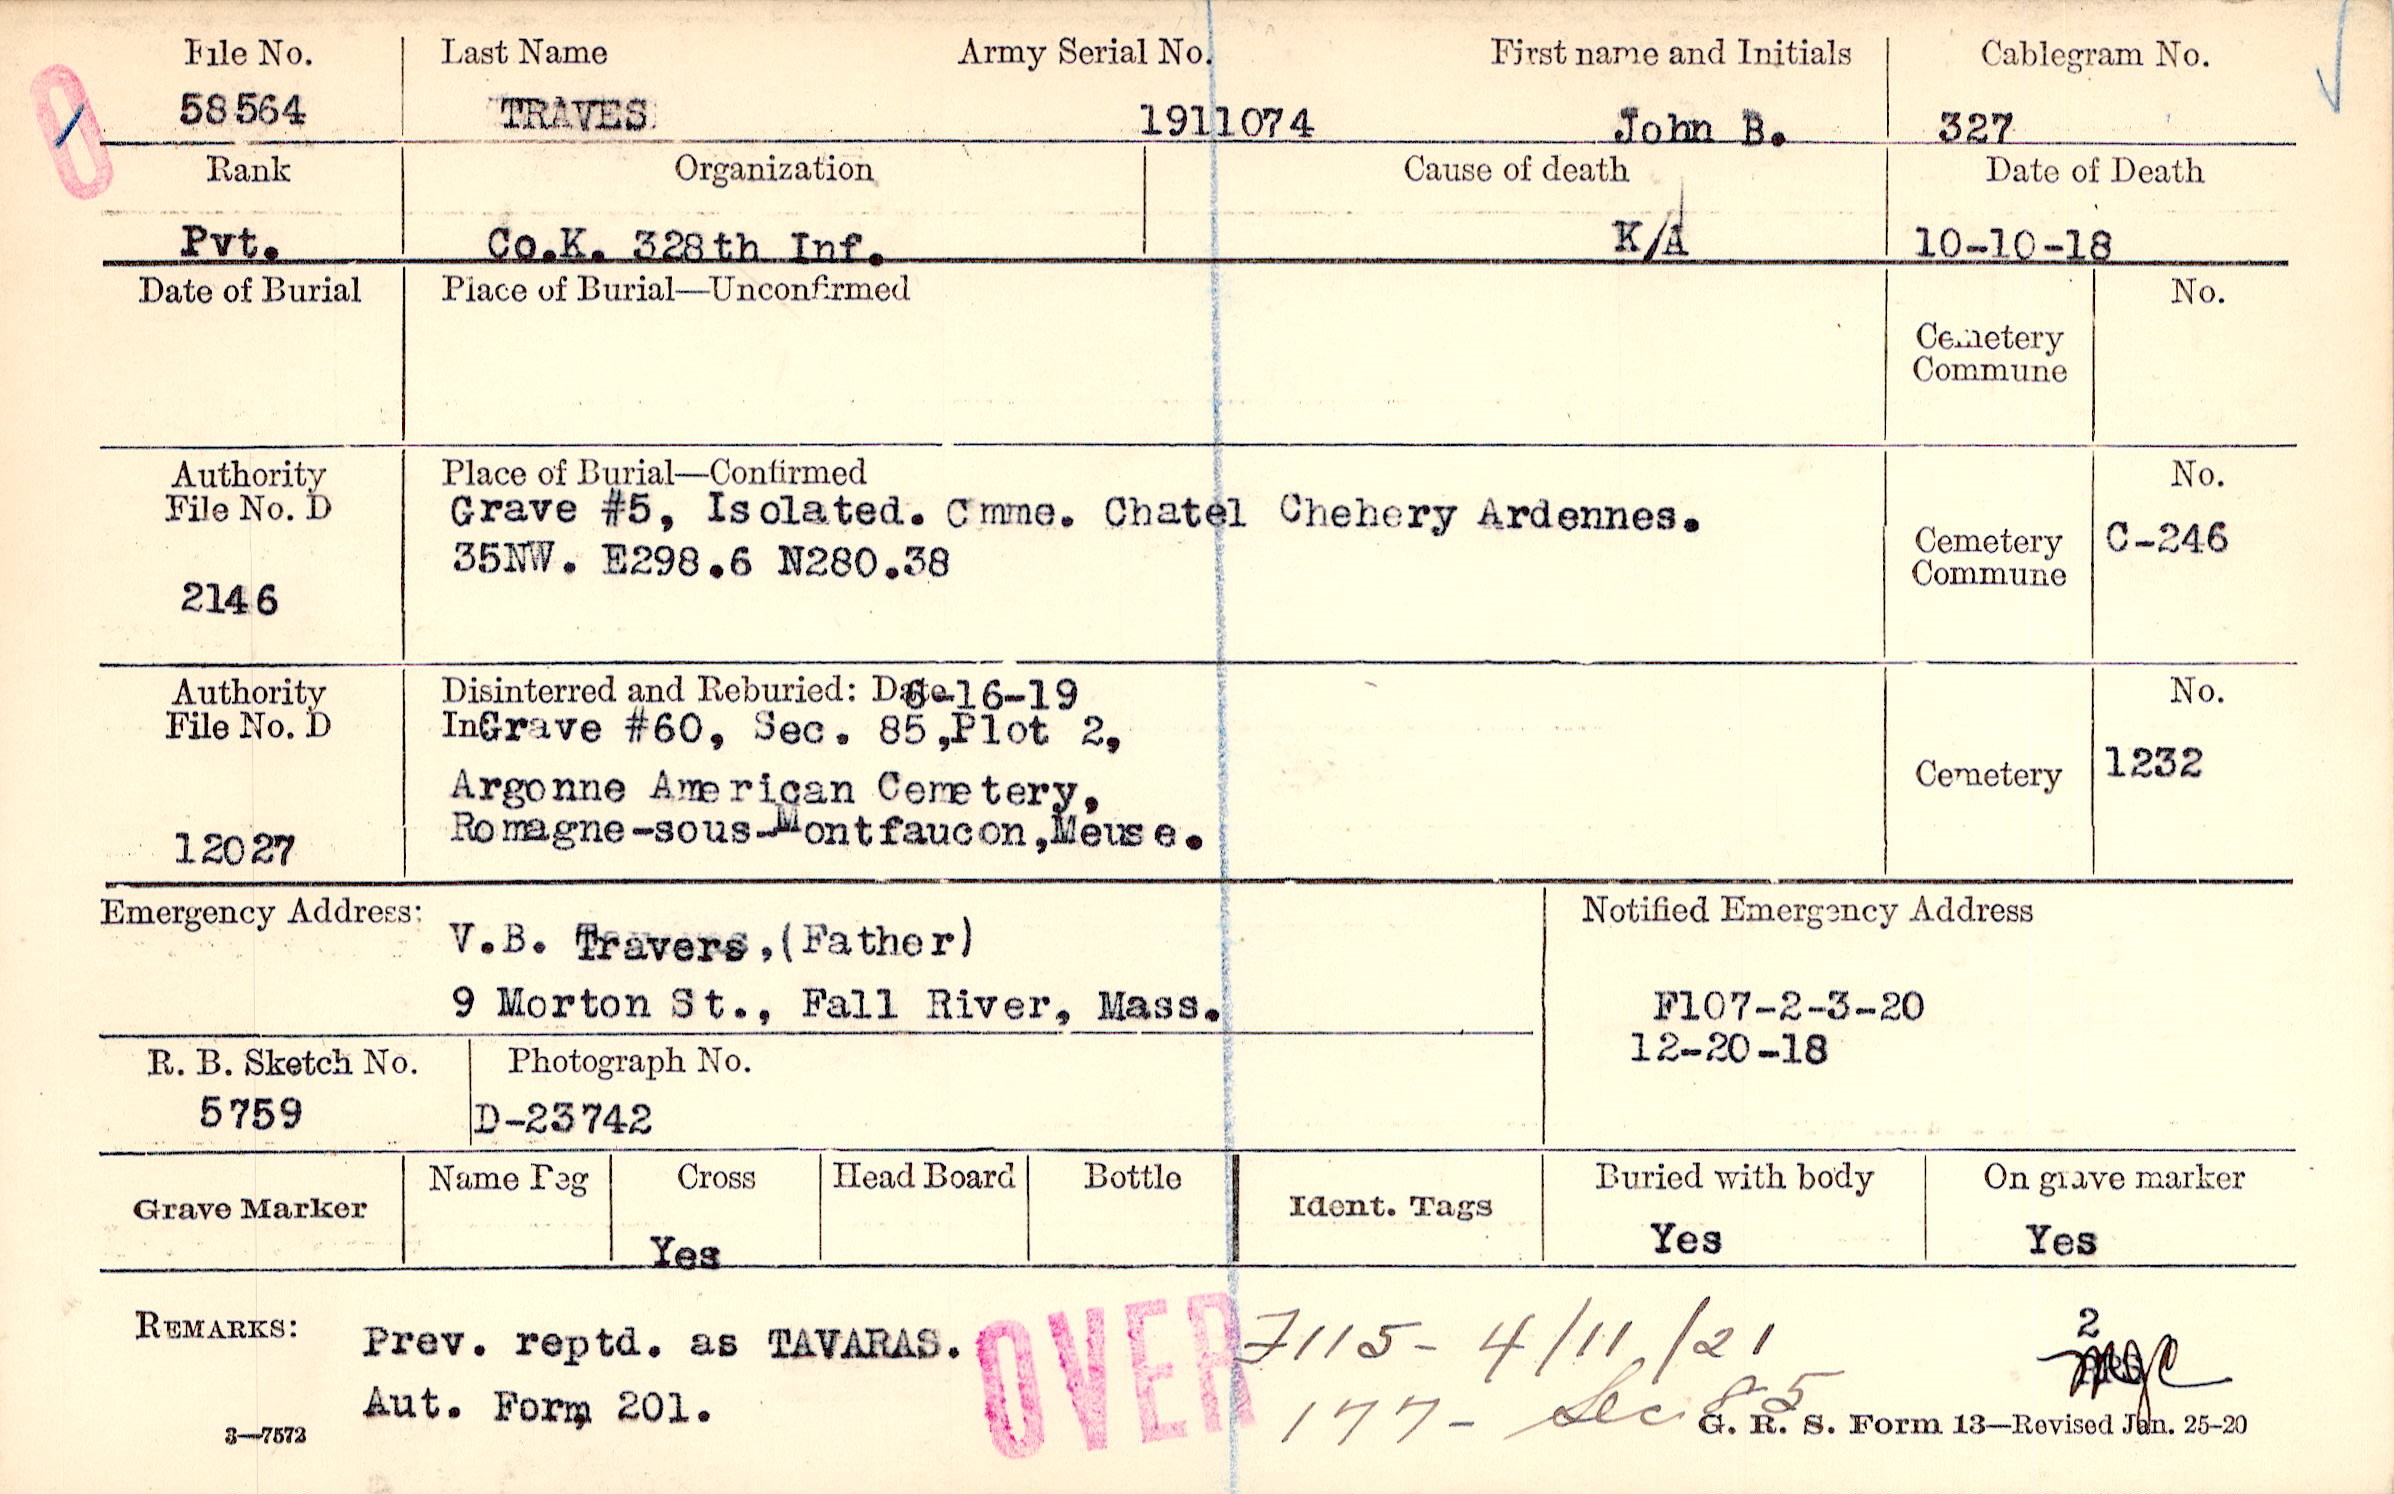 File No. Last Name Army Serial No. First name and Initials Cablegram No.
58564 TRAVES 1911074 John B. 327
Rank Organization Cause of death Date of Death
Pvt. Co.K. 328th Inf. K/A 10-10-18
Date of Burial Place of Burial—Unconfirmed No.
Cemetery
Commune
Authority Place of Burial—Confirmed No.
File No. D Grave #5, Isolated. Cmme. Chatel Chehery Ardennes.
35NW. E298.6 N280.38
Cemetery C-246
Commune
2146
Authority Disinterred and Reburied: Date 6-16-19 No.
File No. D In Grave #60, Sec. 85,Plot 2,
Argonne American Cemetery,
Cemetery 1232
Romagne-sous-Montfaucon,Meuse.
12027
Emergency Address: Notified Emergency Address
V.B. Travers,(Father)
9 Morton St., Fall River, Mass.
F107-2-3-20
12-20-18
R. B. Sketch No. Photograph No.
5759 D-23742
Grave Marker Name Peg Cross Head Board Bottle Ident. Tags Buried with body On grave marker
Yes Yes Yes
REMARKS: Prev. reptd. as TAVARAS.
Aut. Form 201.
OVER
7115- 4/11/21
177- Sec. 85
2
3—7572
G. R. S. Form 13—Revised Jan. 25-20